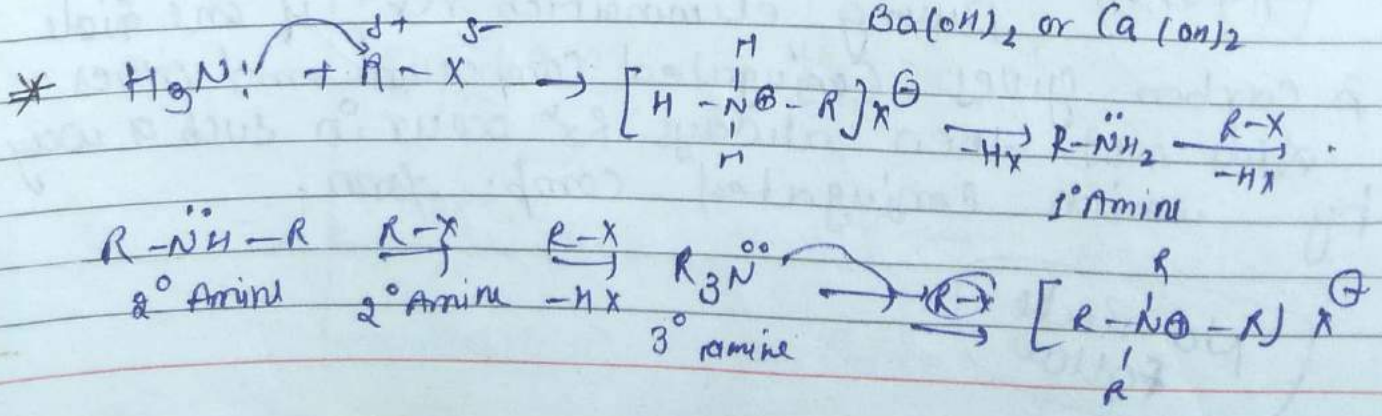 Ba(OH)₂ or Ca(OH)₂
* H₃N: + R^δ+ – X^δ- → [H – N⊕ – R] X⊖ →(-HX) R-N̈H₂ →(R-X, -HX) .
H
H
1° Amine
R-N̈H-R →(R-X) →(R-X, -HX) R₃N̈ →(R-X) [R-N⊕-R] X⊖
R
R
2° Amine 2° Amine 3° amine